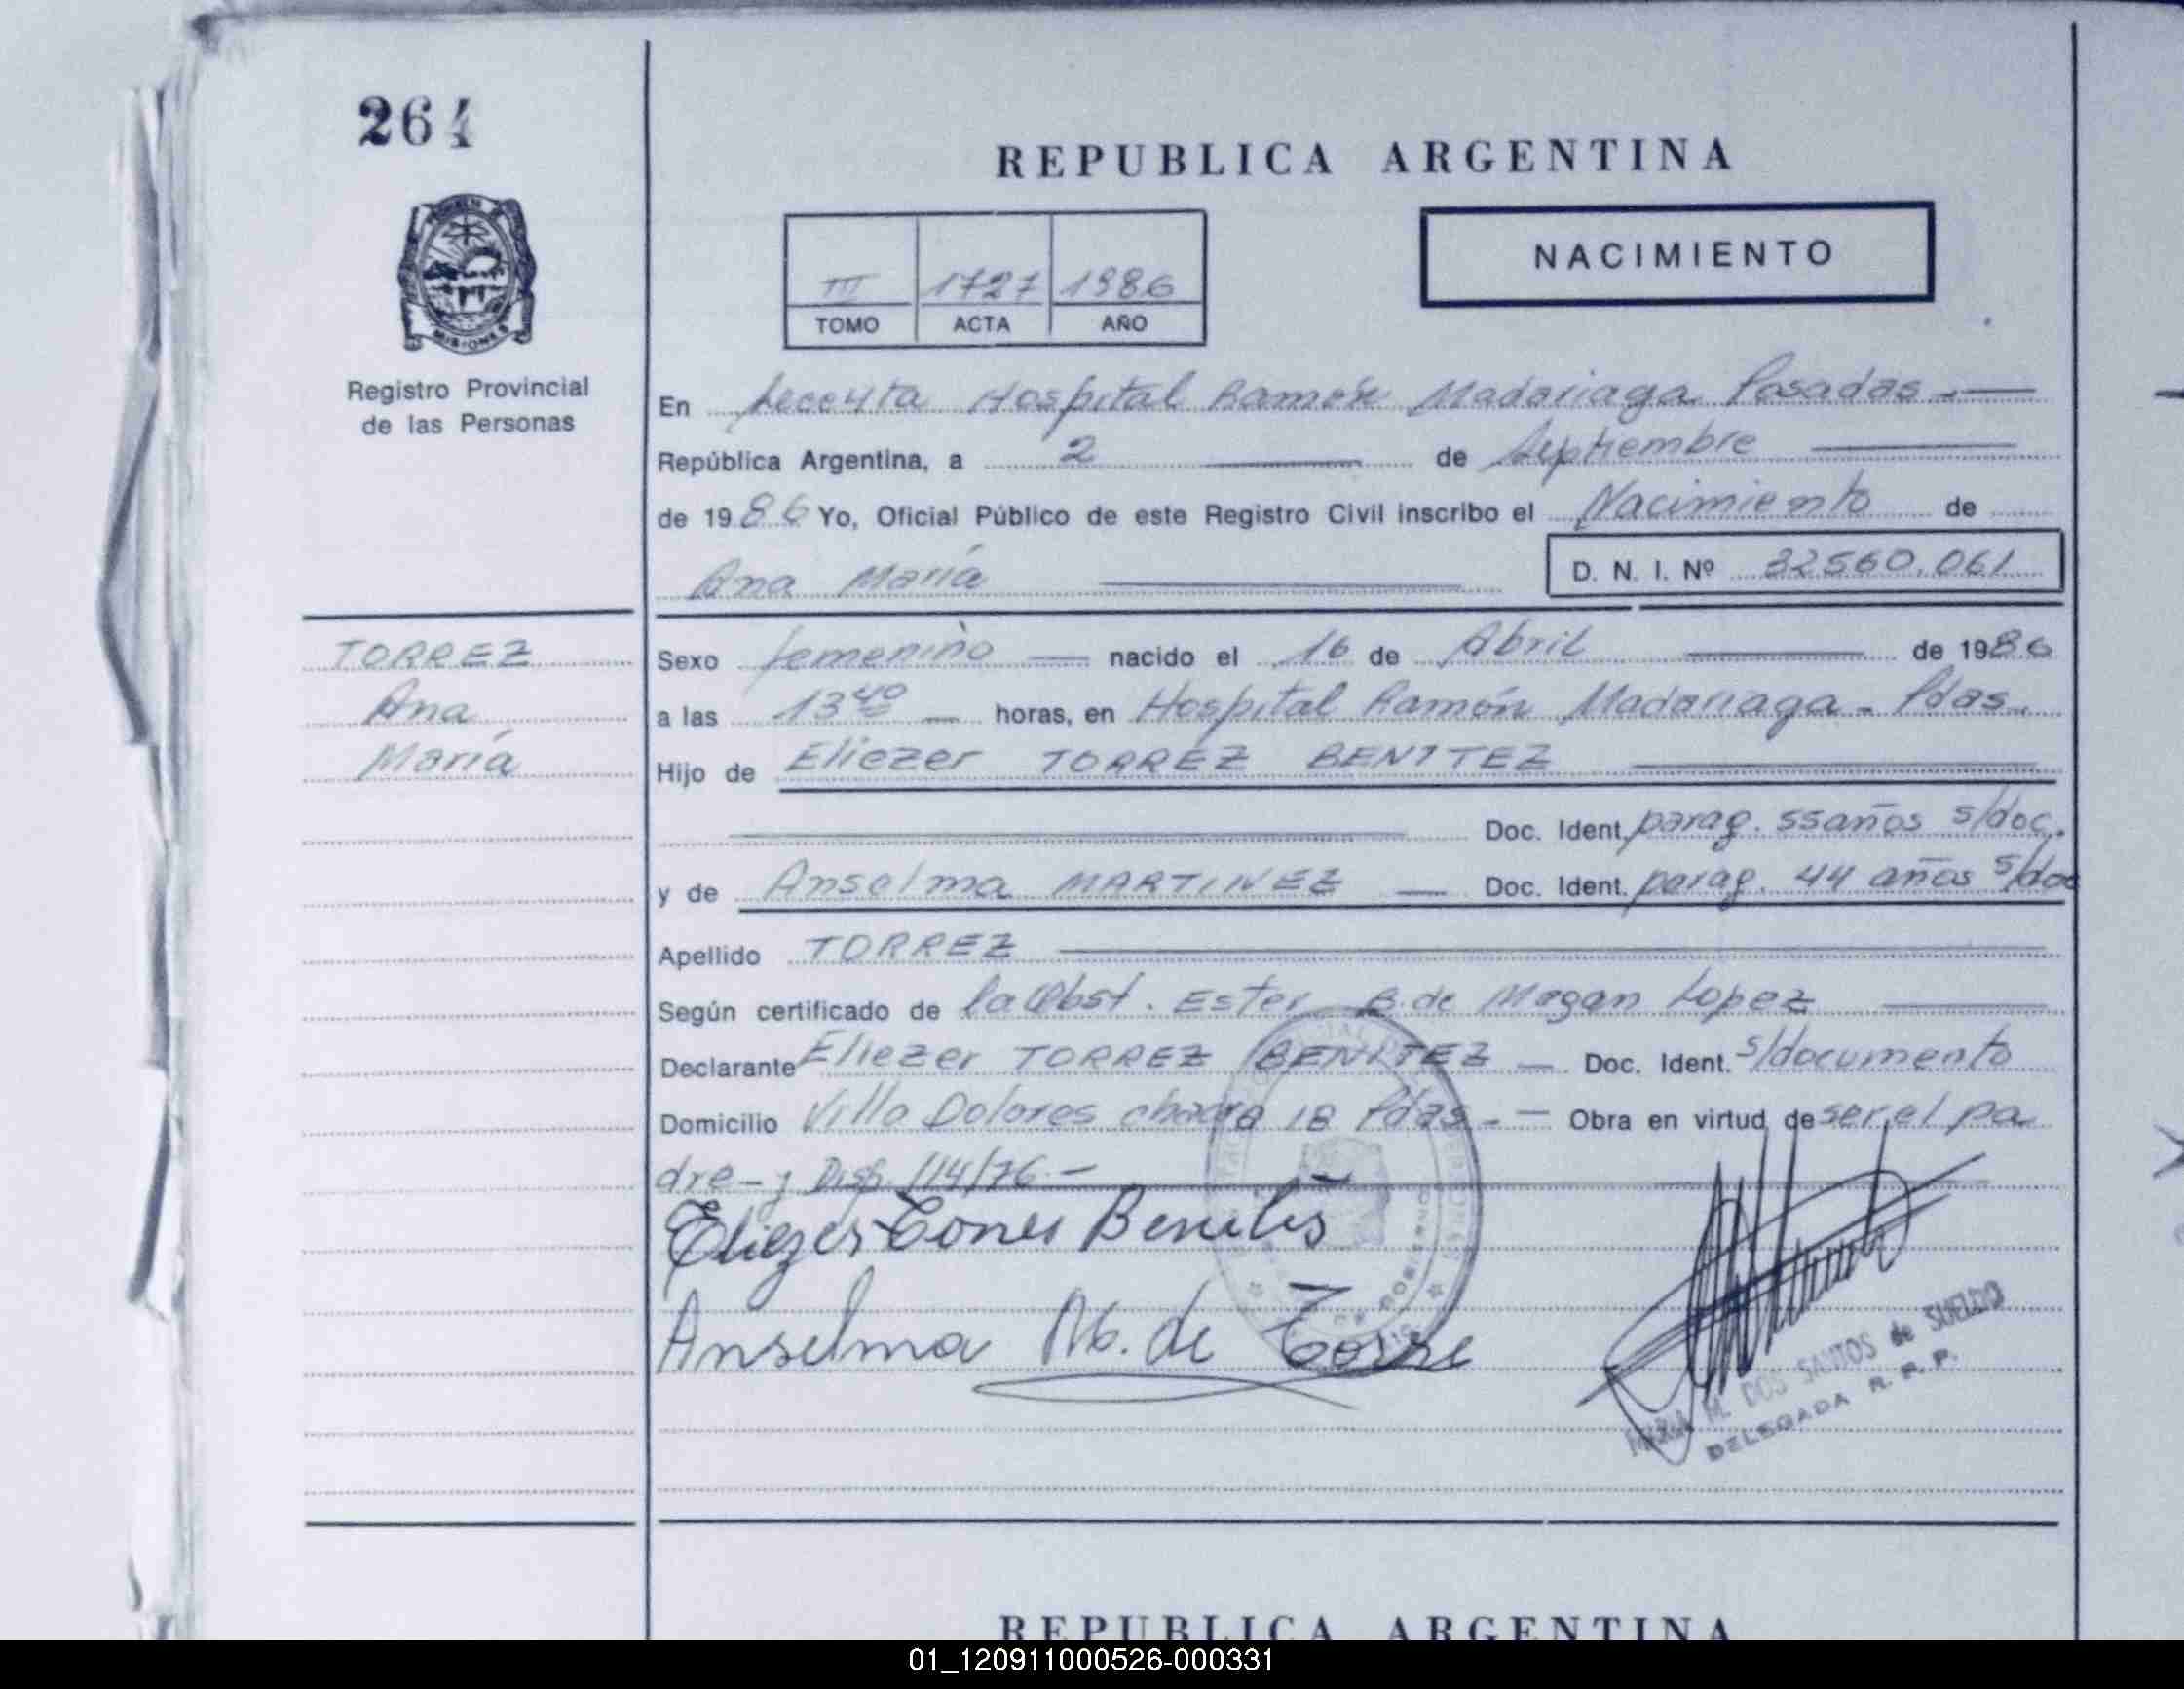 264
REPUBLICA ARGENTINA
NACIMIENTO
III 1727 1986
TOMO ACTA AÑO
Registro Provincial
de las Personas
MISIONES
En Hospital Ramón Madariaga Posadas.-
República Argentina, a 2 de Septiembre
de 1986 Yo, Oficial Público de este Registro Civil inscribo el Nacimiento de
Ana María D. N. I. Nº 32560.061
TORREZ
Ana
María
Sexo femenino nacido el 16 de Abril de 1986
a las 13 40 horas, en Hospital Ramón Madariaga - Pdas.
Hijo de Eliezer TORREZ BENITEZ
Doc. Ident. parag. 55 años s/doc.
y de Anselma MARTINEZ Doc. Ident. parag. 44 años s/doc
Apellido TORREZ
Según certificado de la Obst. Ester B. de Magan Lopez
Declarante Eliezer TORREZ BENITEZ Doc. Ident. s/documento
Domicilio Villa Dolores chacra 18 Pdas.- Obra en virtud de ser el pa
dre-y Disp. 114/76.-
Eliezer Torres Benites
Anselma M. de Torre
MARIA M. DOS SANTOS de SUELDO
DELEGADA R. P. P.
REPUBLICA ARGENTINA
01_120911000526-000331